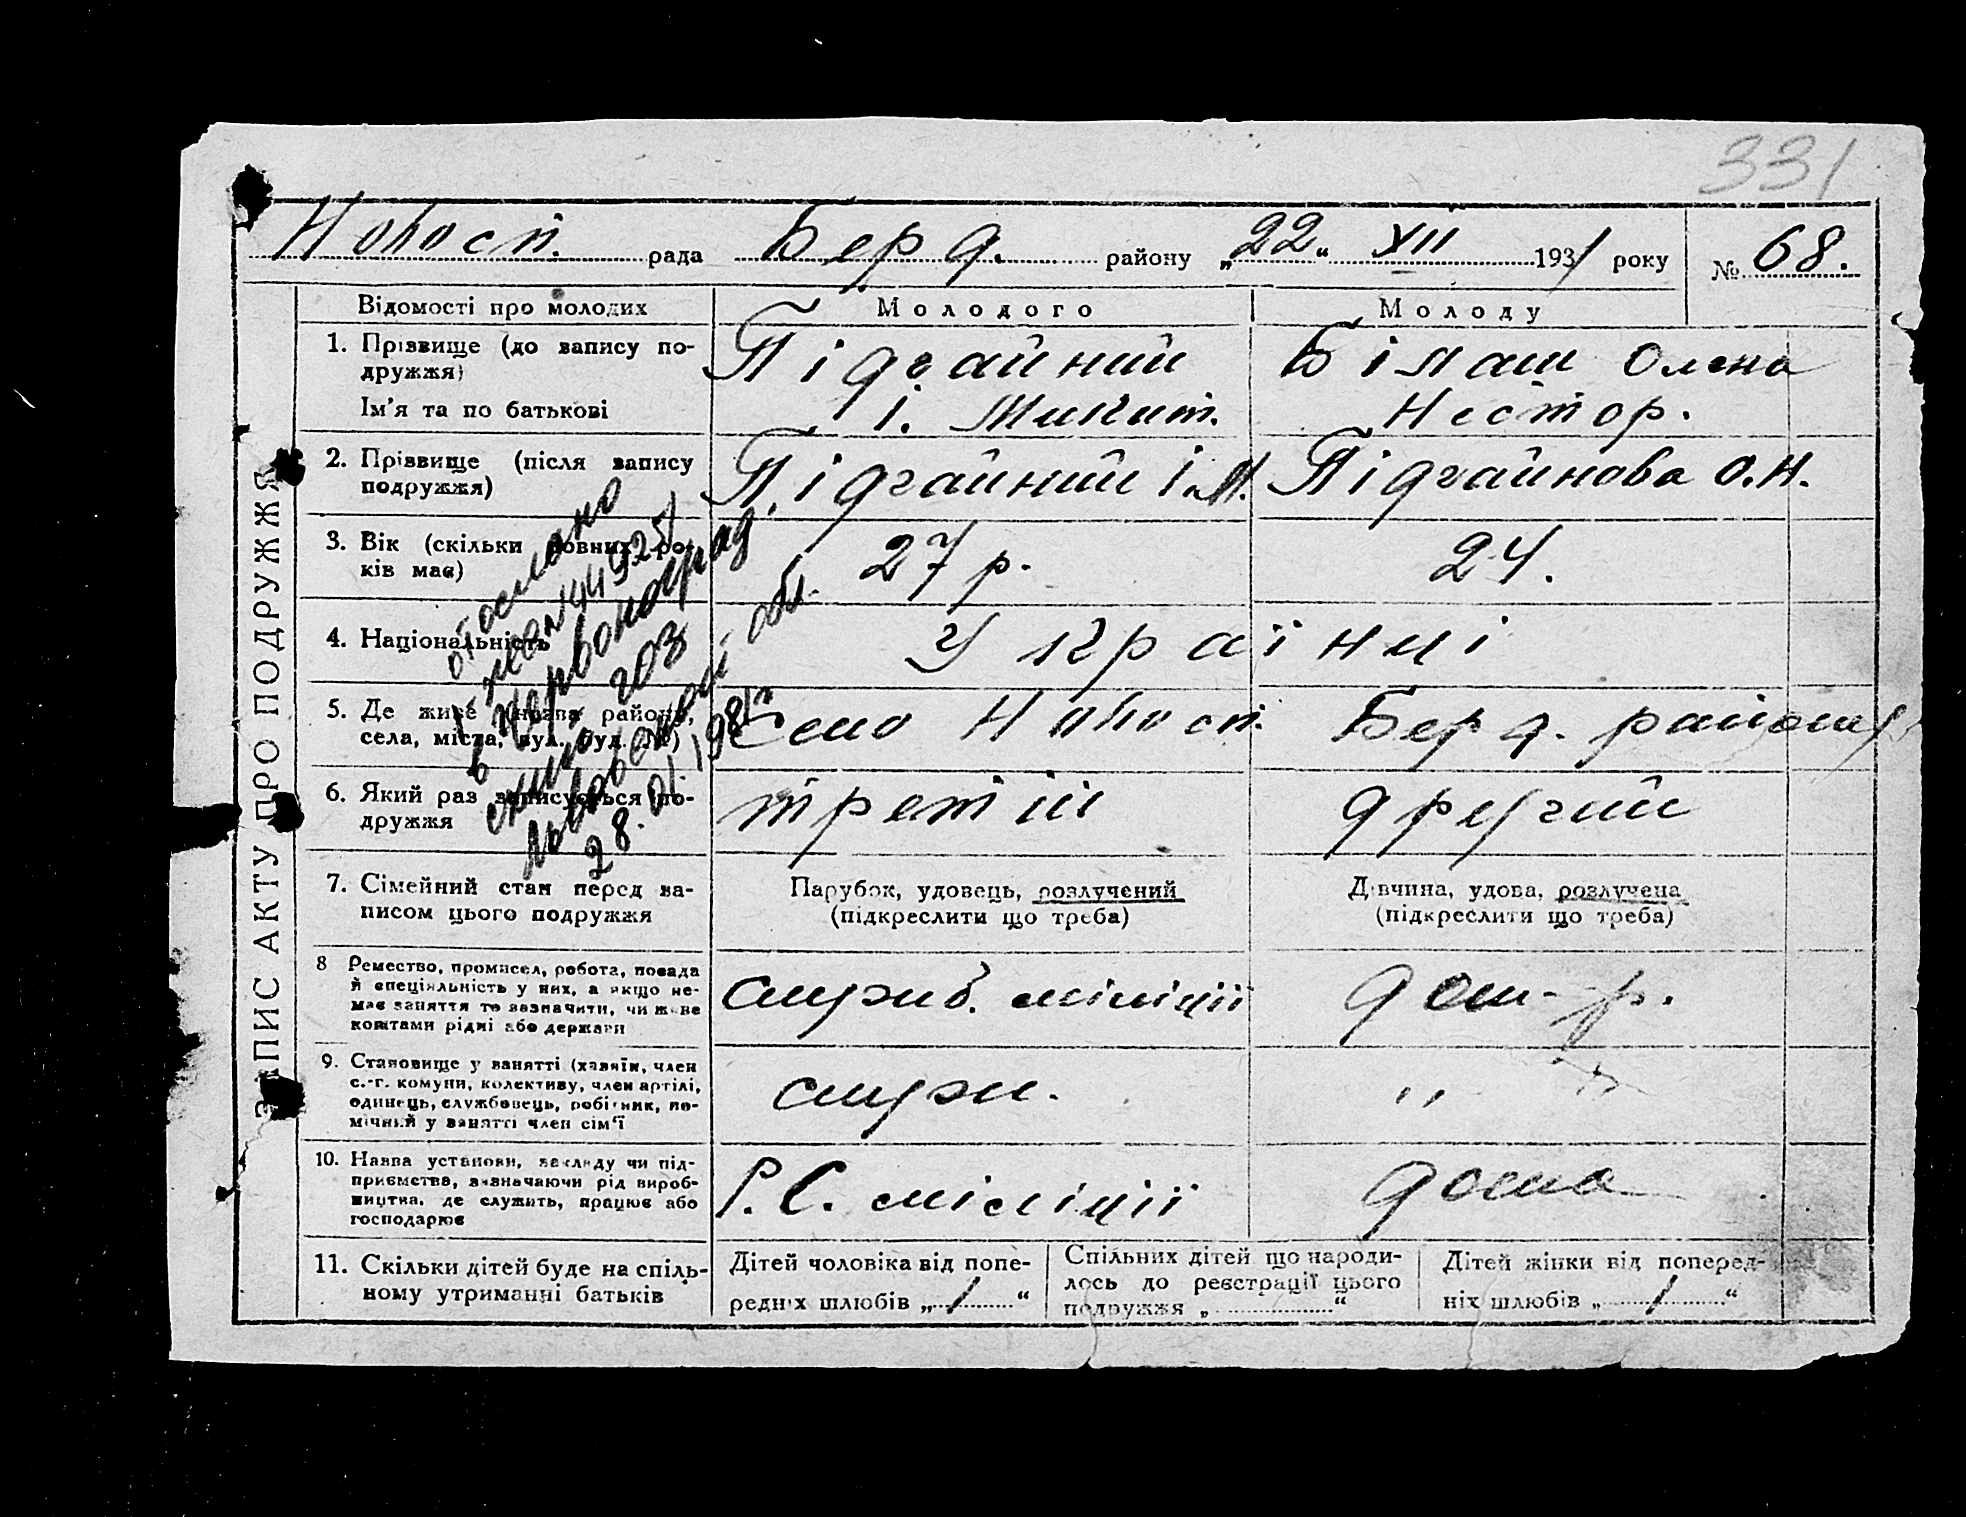 331
Новосп. рада Берд. району „22“ XII 1931 року № 68.
ЗАПИС АКТУ ПРО ПОДРУЖЖЯ
Відомості про молодих Молодого Молоду
1. Прізвище (до запису по-
дружжя)
Ім'я та по батькові
Підгайний
І. Микит.
Білаш Олена
Нестор.
2. Прізвище (після запису
подружжя)
Підгайний І.М.
Підгайнова О.Н.
3. Вік (скільки повних ро-
ків має)
27 р.
24.
4. Національність
Українці
5. Де живе (назва району,
села, міста, вул. буд. №)
Село Новосп. Берд. району
6. Який раз записується по-
дружжя
третій
другий
7. Сімейний стан перед за-
писом цього подружжя
Парубок, удовець, розлучений
(підкреслити що треба)
Дівчина, удова, розлучена
(підкреслити що треба)
8 Ремество, промисел, робота, посада
й спеціяльність у них, а якщо не-
має заняття то зазначити, чи живе
коштами рідні або держави
служб. міліції
дом-р.
9. Становище у занятті (хазяїн, член
с.-г. комуни, колективу, член артілі,
одинець, службовець, робітник, по-
мічний у занятті член сім'ї
служ.
" "
10. Назва установи, закладу чи під-
приємства, зазначаючи рід вироб-
ництва, де служить, працює або
господарює
Р. С. міліції
дома
11. Скільки дітей буде на спіль-
ному утриманні батьків
Дітей чоловіка від попе-
редніх шлюбів „1“
Спільних дітей що народи-
лось до реєстрації цього
подружжя „ “
Дітей жінки від поперед-
ніх шлюбів „1“
отослано
I-ЖС №449257
в Червоноград.
ГОЗ
Львовской обл.
28.01.1981г